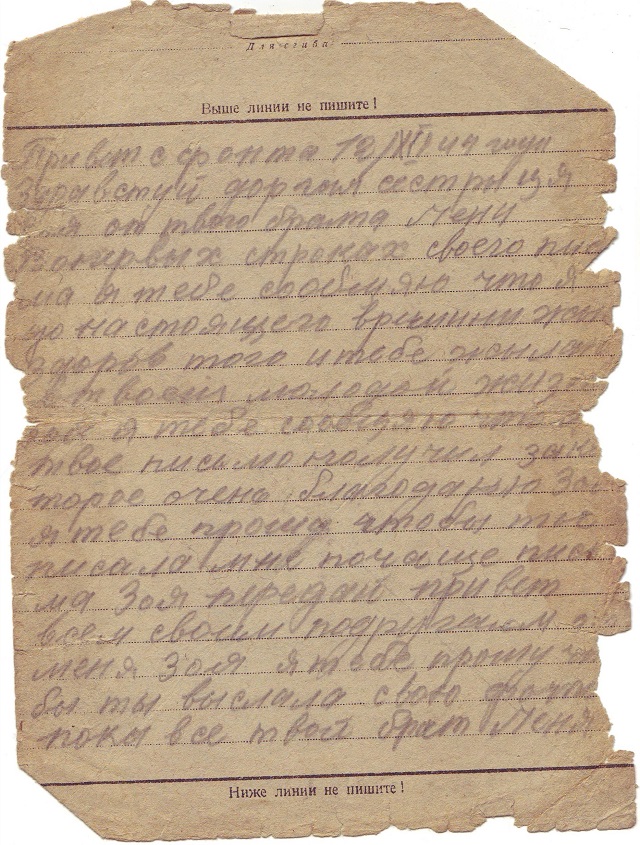 Для сгиба
Выше линии не пишите!
Привет с фронта 12/XII 44 года
Здравствуй доргая сестрица
от твого брата Мени
Вопервых строках своего пис
ма я тебе сообщяю что я
до настоящего времини жив
здоров того и тебе жылаю
в твоей молодой жизни
я тебе сообщяю что
твое письмо получил за ко
торое очень благодарю Зоя
я тебе прошу чтобы ты
писала мне почаще пись
ма Зоя передай привет
всем своим подругам от
меня Зоя я тебе прошу что
бы ты выслала свою фото
покы все твой брат Меня
Ниже линии не пишите!